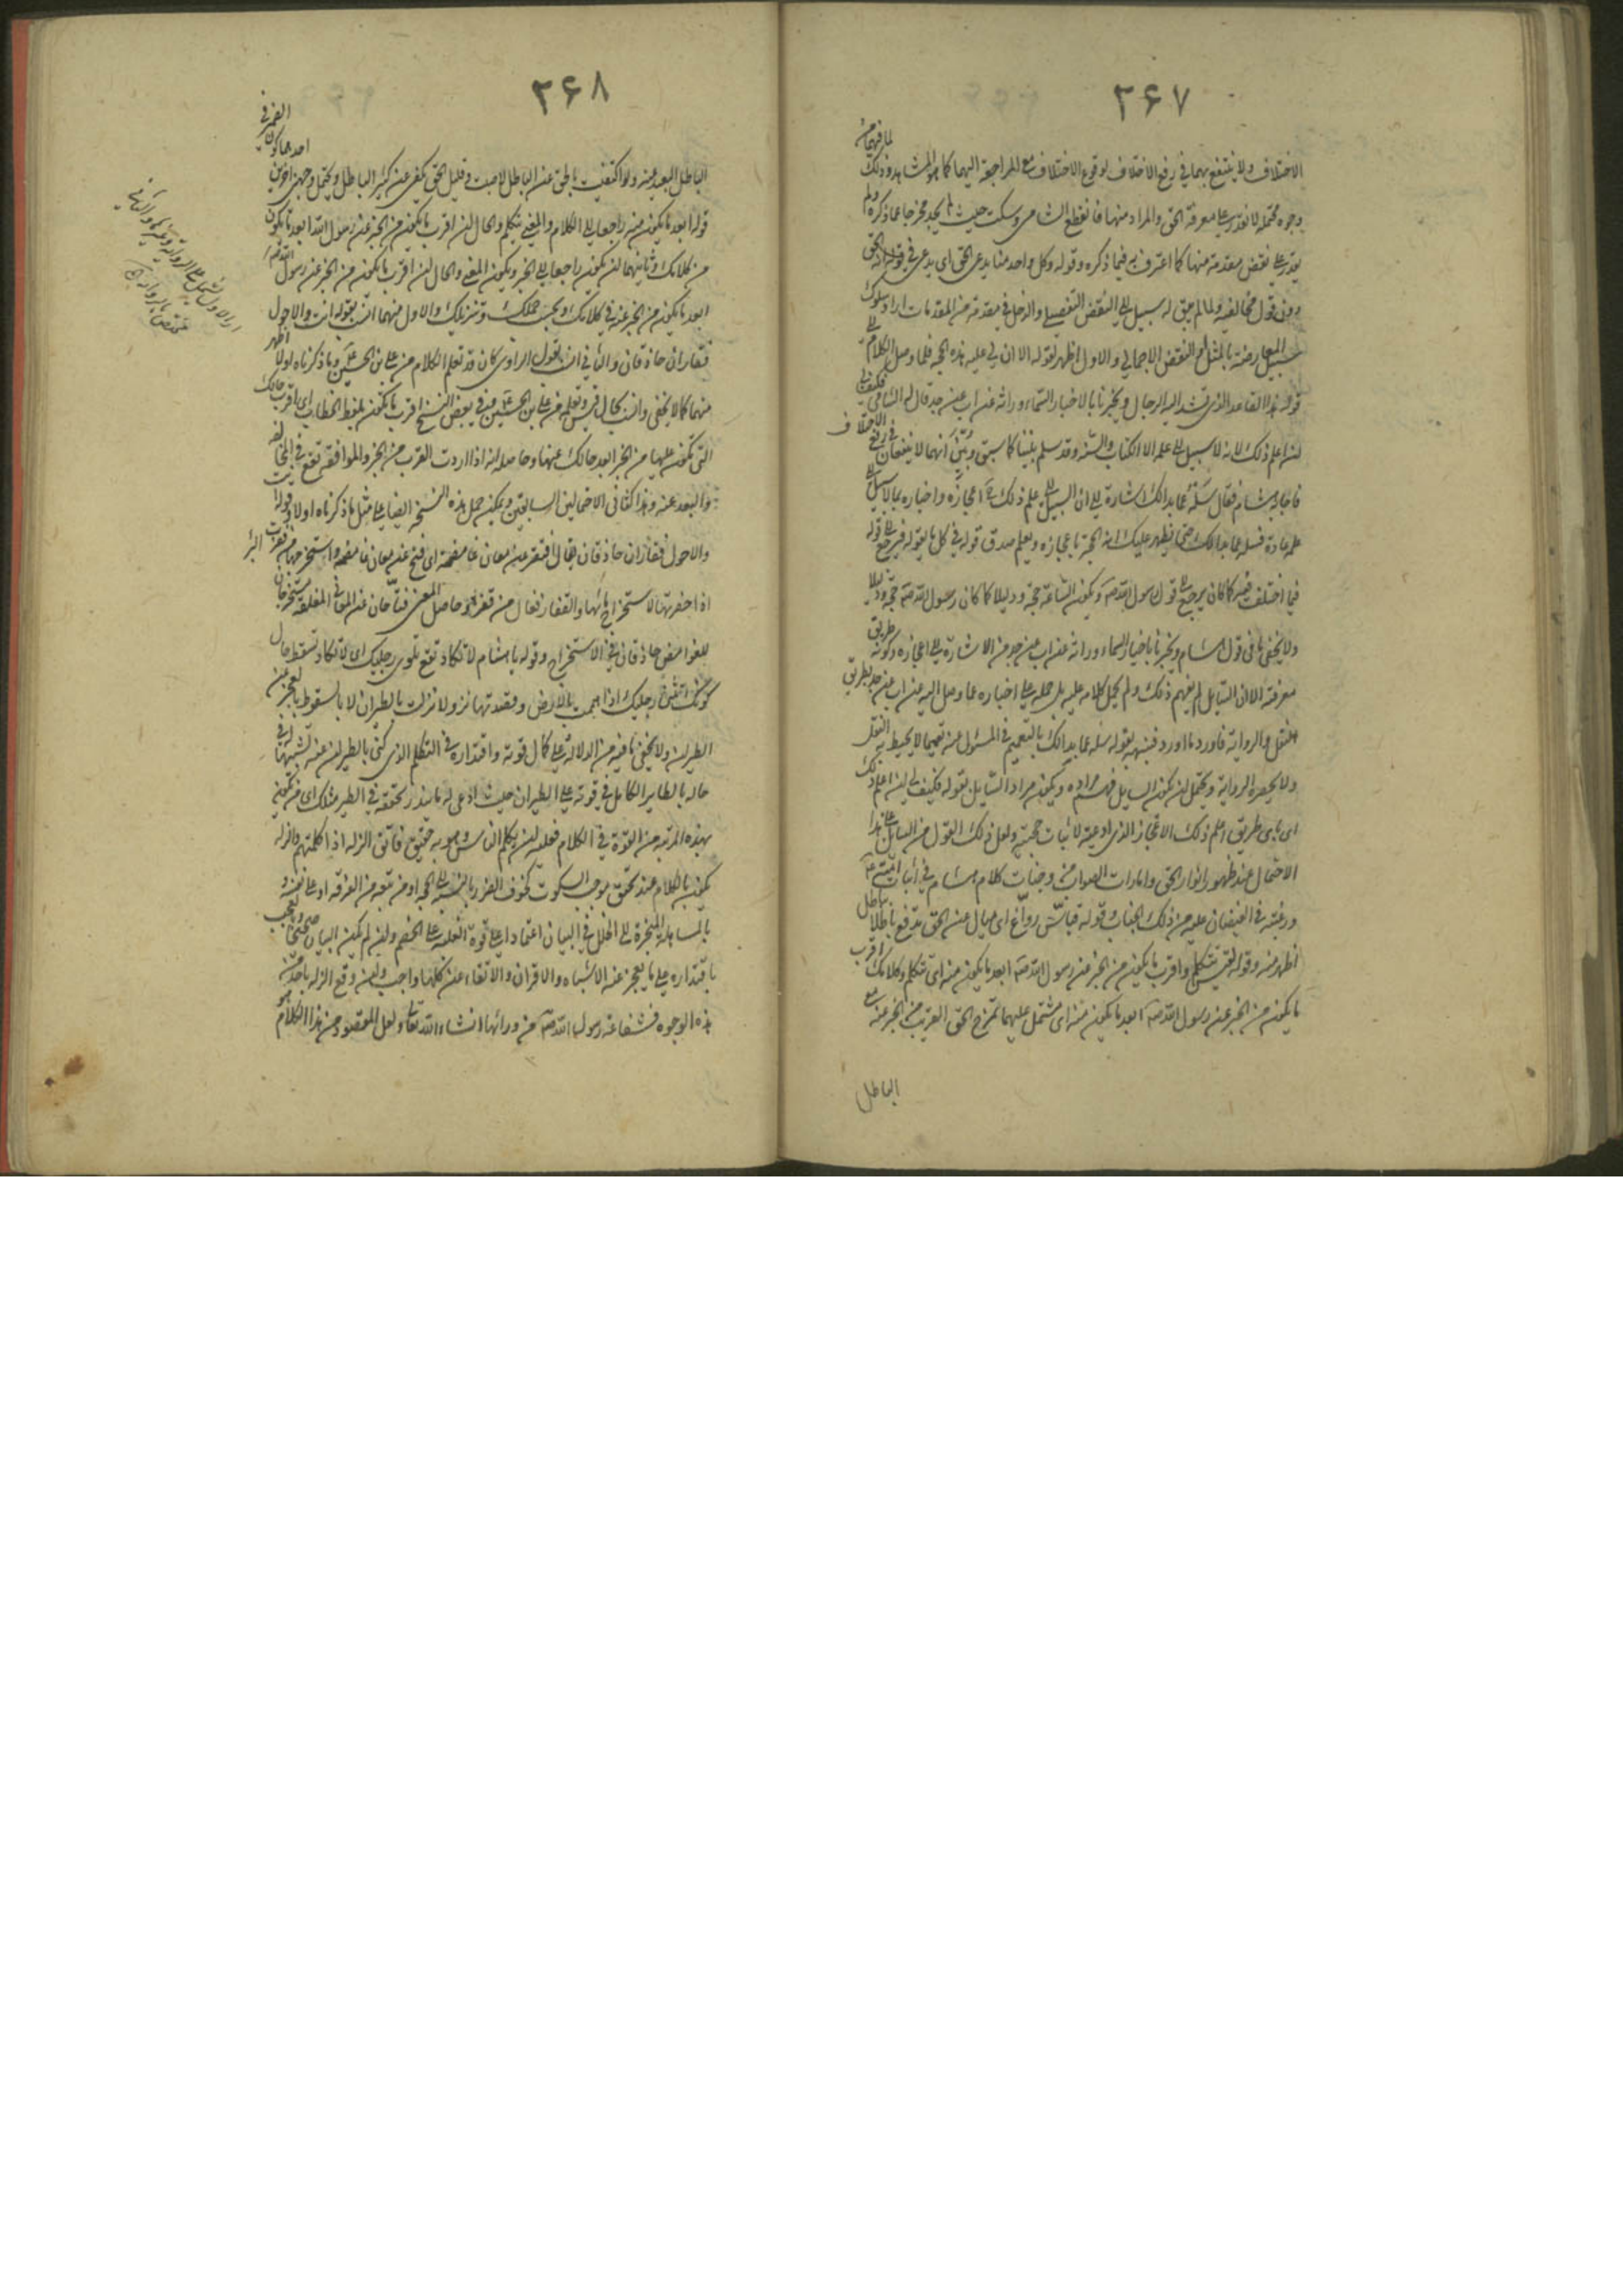 ٣۶٧
لما فيهما من
الاختلاف ولا ينتفع بهما في رفع الاختلاف لوقوع الاختلاف مع المراجعة اليهما كما هو المشاهد وذلك
وجوه محتملة لا نقدر على معرفة الحق والمراد منها فانقطع الشامي وسكت حيث لم يجد مخرجا عما ذكره ولم
يقدر على نقض مقدمة منها كما اعترف به فيما ذكره وقوله وكل واحد منا يدعي الحق اى يدعي في قوله انه الحق
دون قول مخالفيه ولما لم يبق له سبيل الى النقض التفصيلي والدخل في مقدمة من المقدمات اراد سلوك
سبيل المعارضة بالمثل او النقض الاجمالي والاول اظهر لقوله الا ان لي عليه هذه الحجة فلما وصل الكلام الى
قوله هذا القاعد الذي تشد اليه الرحال ويخبرنا بالاخبار السماء وراثة عن اب عن جد قال له الشامي فكيف لي
ان اعلم ذلك لانه لا سبيل الى علمه الا الكتاب والسنة وقد سلم بيننا كما سبق وتبين انهما لا ينفعان في رفع الاختلاف
فاجابه هشام فقال سله عما بدا لك اشارة الى ان السبيل الى علم ذلك اعجازه واخباره بما لا سبيل الى
علمه عادة فسله عما بدا لك حتى يظهر عليك انه الحجة باعجازه ويعلم صدق قوله في كل ما يقوله فيرجع الى قوله
فيما اختلف فيه كما كان يرجع الى قول رسول الله ص ويكون الساعة حجة ودليلا كما كان رسول الله ص حجة ودليلا
ولا يخفى ما في قول هشام ويخبرنا باخبار السماء وراثة عن اب عن جد من الاشارة الى اعجازه وكونه طريق
معرفته الا ان السايل لم يفهم ذلك ولم يحمل كلامه عليه بل حمله على اخباره عما وصل اليه عن اب عن جد بطريق
النقل والرواية فاورد ما اورد فنبهه بقوله سله عما بدا لك بالتعميم في المسئول عنه تعميما لا يحيط به النقل
ولا يحصره الرواية ويحتمل ان يكون السايل فهم مراده ويكون مراد السايل بقوله فكيف لي ان اعلم ذلك
اى باى طريق اعلم ذلك الاعجاز الذي ادعيته لاثبات حجيته ولعل ذلك القول من السايل على هذا
الاحتمال عند ظهور انوار الحق وامارات الصواب من وجنات كلام هشام في اثبات
ورغبته في الفيضان عليه من ذلك الجناب وقوله قياس رواغ اى ميال عن الحق تدفع باطلا بباطل
اظهر منه وقوله لقيس تتكلم واقرب ما يكون من الخبر عن رسول الله ص ابعد ما يكون منه اى تتكلم وكلامك اقرب
ما يكون من الخبر عن رسول الله ص ابعد ما يكون منه اى مشتمل عليهما تمزج الحق القريب من الخبر عنه مع
الباطل
٣۶٨
الباطل البعيد عنه ولو اكتفيت بالحق عن الباطل لاصبت وقليل الحق يكفي عن كثير الباطل ويحتمل وجهين اخرين احدهما كون الضمير في
قوله ابعد ما يكون منه راجعا الى الكلام والمعنى تتكلم والحال ان اقرب ما يكون من الخبر عن رسول الله ابعد ما يكون
من كلامك وثانيهما ان يكون راجعا الى الخبر ويكون المعنى والحال ان اقرب ما يكون من الخبر عن رسول الله ص
ابعد ما يكون من الخبر عنه في كلامك وبحسب حملك وتنزيلك والاول منهما انسب بقوله انت والاحول
قفازان حاذقان والثاني انسب بقول الراوي كان قد تعلم الكلام من علي بن الحسين ع وما ذكرناه اولا اظهر
منهما كما لا يخفى وانسب بحال قيس وتعلمه من علي بن الحسين وفي بعض النسخ اقرب ما تكون بلفظ الخطاب اى اقرب حالك
التي تكون عليها من الخبر ابعد حالك عنها وحاصله انه اذا اردت القرب من الخبر والموافقة تقع في المخالفة
والبعد عنه وهذا كثاني الاحتمالين السابقين ويمكن حمل هذه النسخة ايضا على مثل ما ذكرناه اولا وقوله انت
والاحول قفازان حاذقان
اذا حفرتها لاستخراج مائها والقفاز فعال من قفز وحاصل المعنى فتاحان عن المعاني المغلقة مستخرجان
للغوامض حاذقان في الاستخراج وقوله يا هشام لا تكاد تقع تلوي رجليك اى لا تكاد تسقط حال
كونك تثني رجليك اذا هممت بالارض وقصدتها نزولا نزلت بالطيران لا بالسقوط بالعجز عن
الطيران ولا يخفى ما فيه من الدلالة على كمال قوته واقتداره في التكلم الذي كنى بالطيران عنه لتشبيهه في
حاله بالطاير الكامل في قوته على الطيران حيث ادعى له ما يندر تحققه في الطير مثلك اى من يكون
بهذه المرتبة من القوة في الكلام فعليه ان يكلم الناس وهو به حقيق فاتق الزلة اذا كلمتهم والزلة
بالمساهلة المنجرة الى الخلل في البيان اعتمادا على قوة الغلبة على الخصم وان لم يكن البيان
باقتداره على ما يعجز عنه الاشباه والاقران والاتقاء عن كلها واجب وان وقع الزلة باحد من
هذه الوجوه فشفاعة رسول الله ص من ورائها انشاء الله تعالى ولعل المقصود من هذا الكلام هو